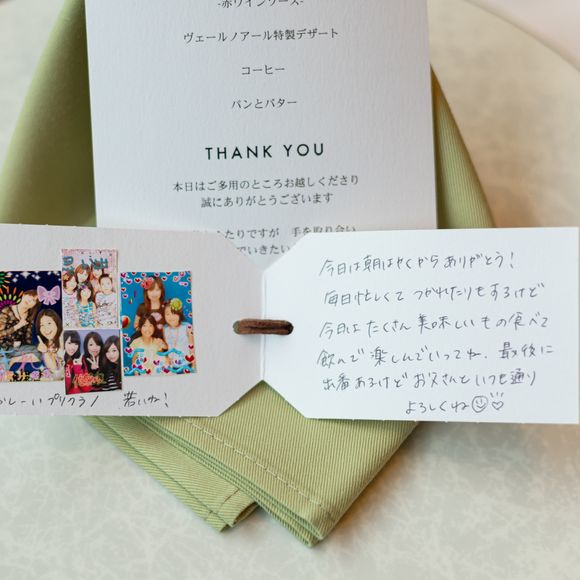 -赤ワインソース-
ヴェールノアール特製デザート
コーヒー
パンとバター
THANK YOU
本日はご多用のところお越しくださり
誠にありがとうございます
ふたりですが 手を取り合い
でいきたい
今日は朝はやくからありがとう!
毎日忙しくて つかれたりもするけど
今日は たくさん 美味しい もの 食べて
飲んで 楽しんでいってね. 最後に
出番あるけど お父さんと いつも通り
よろしくね
かしーいプリクラ! 若いね!